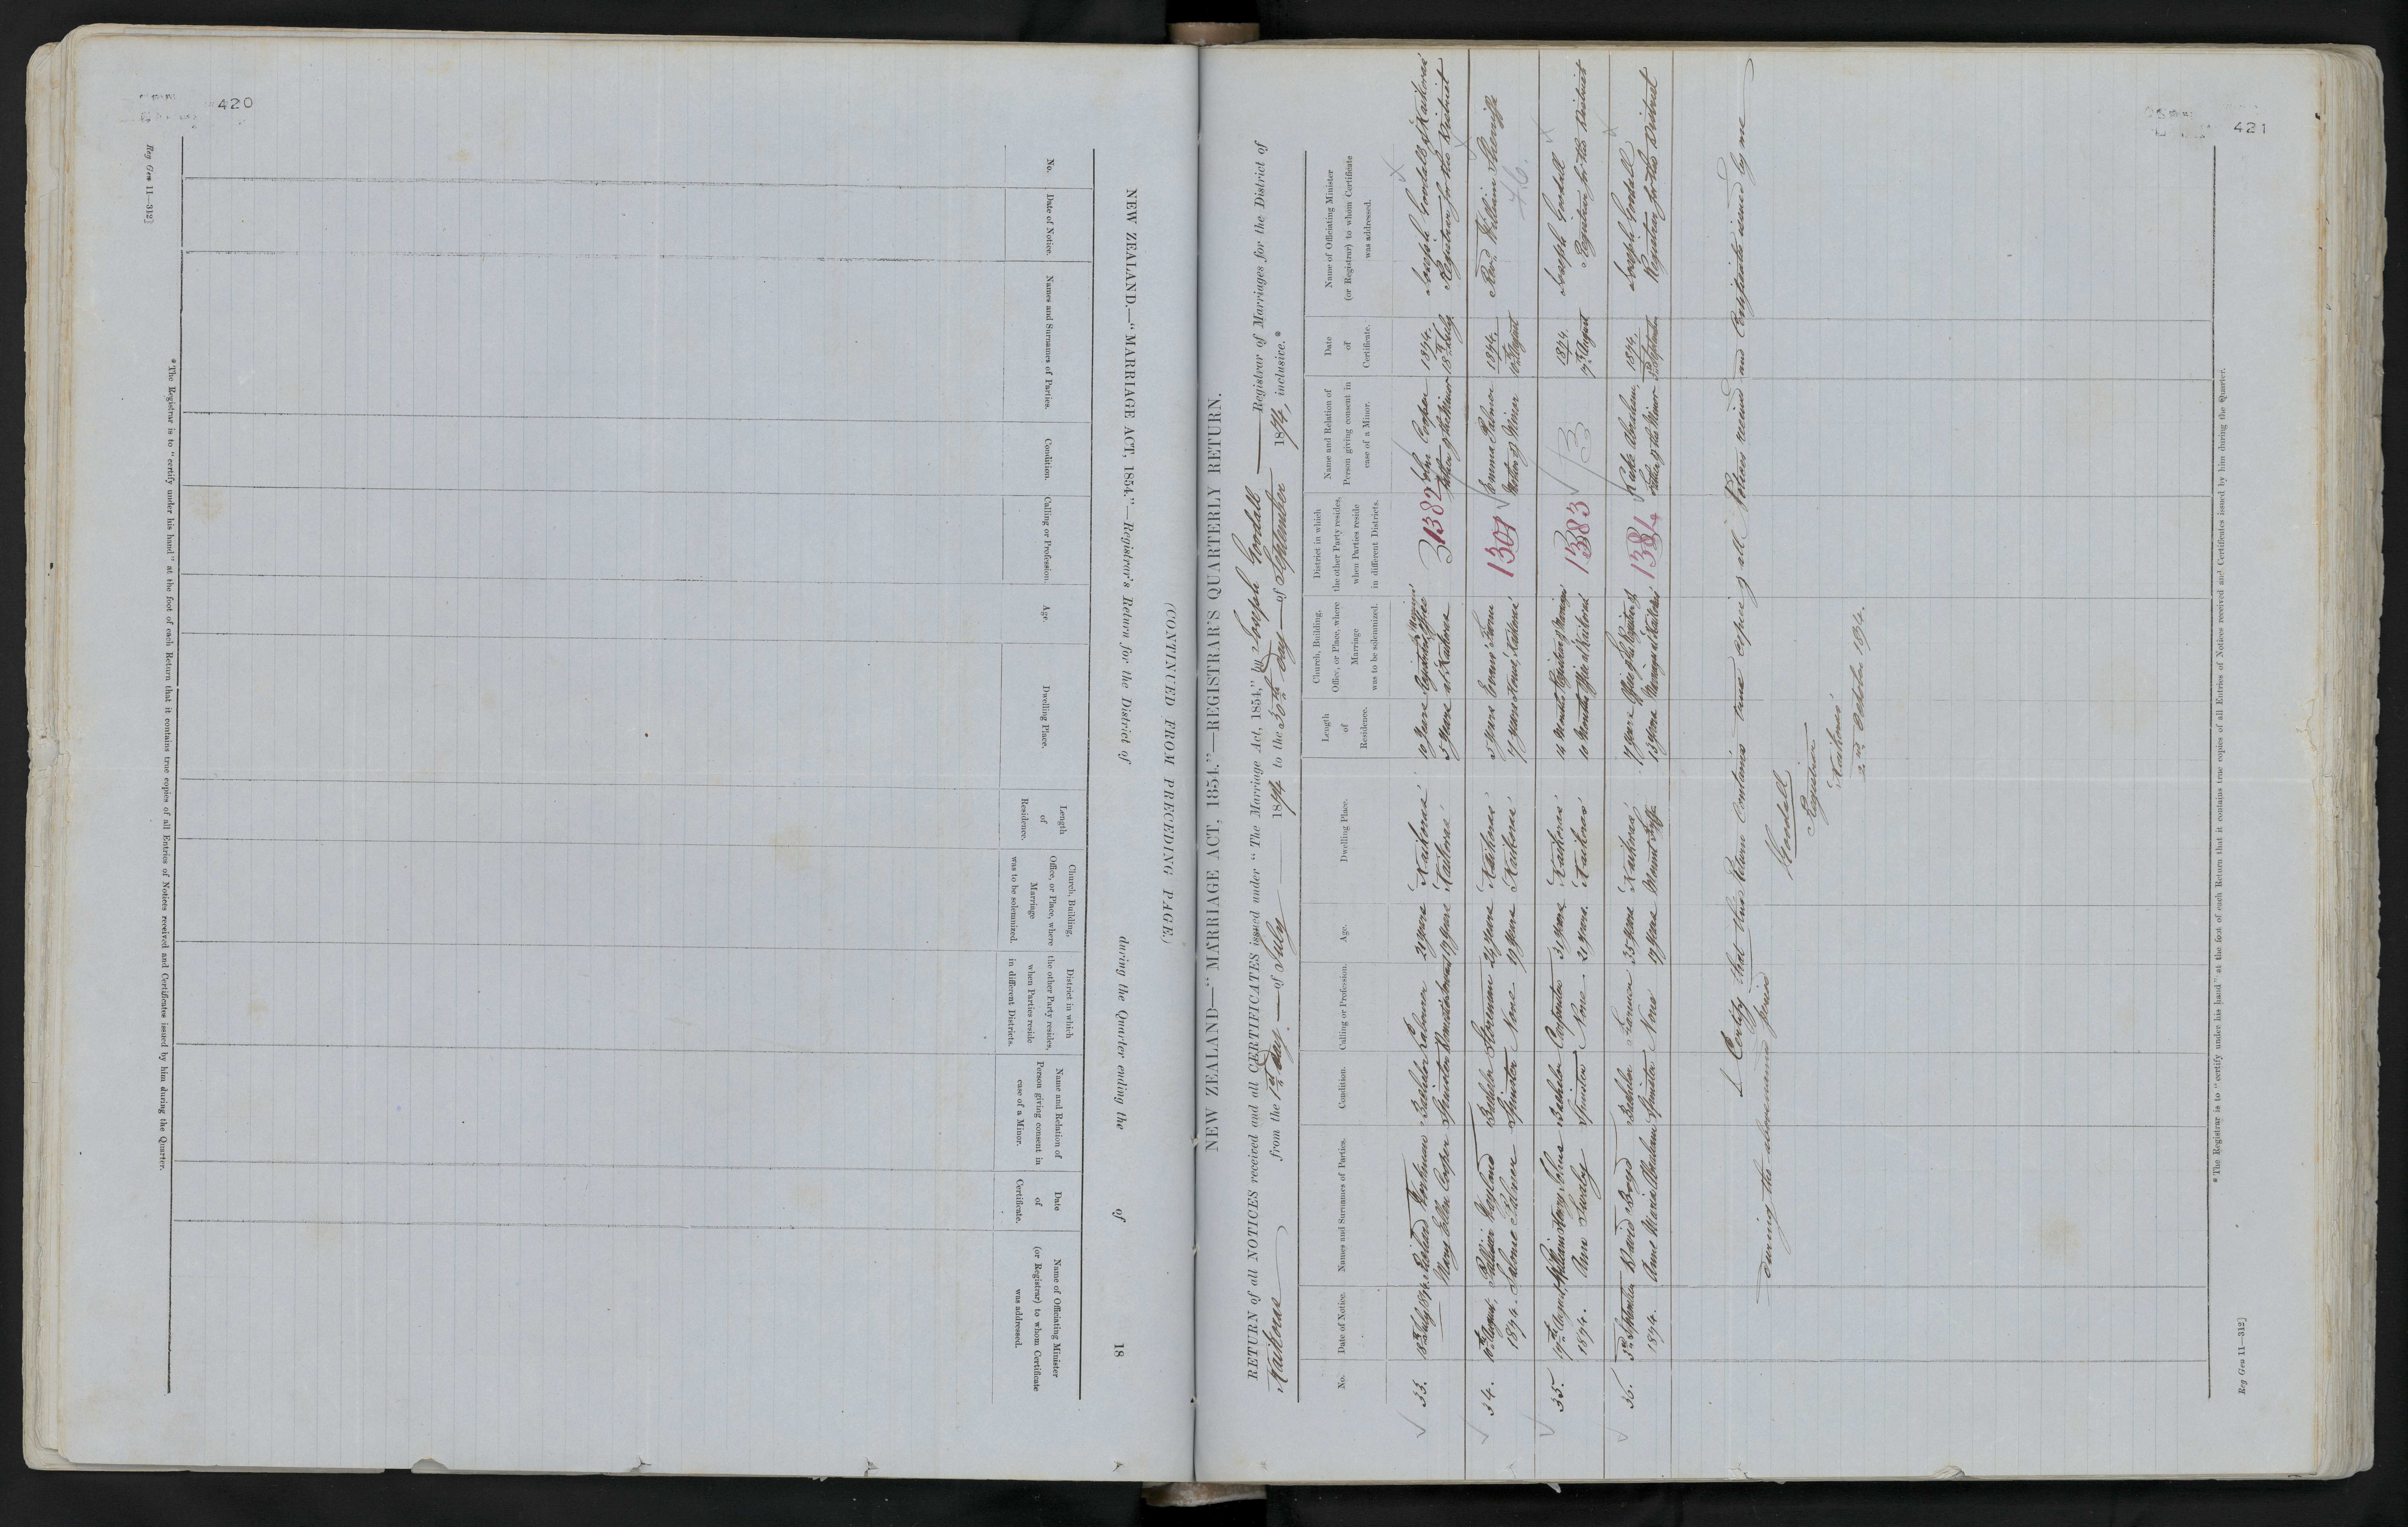 420
NEW ZEALAND.—"MARRIAGE ACT, 1854."—Registrar's Return for the District of during the Quarter ending the of 18
(CONTINUED FROM PRECEDING PAGE.)
No.
Date of Notice.
Names and Surnames of Parties.
Condition.
Calling or Profession.
Age.
Dwelling Place.
Length of Residence.
Church, Building, Office, or Place, where Marriage was to be solemnized.
District in which the other Party resides, when Parties reside in different Districts.
Name and Relation of Person giving consent in case of a Minor.
Date of Certificate.
Name of Officiating Minister (or Registrar) to whom Certificate was addressed.
*The Registrar is to "certify under his hand" at the foot of each Return that it contains true copies of all Entries of Notices received and Certificates issued by him during the Quarter.
Reg Gen 11—312]
421
NEW ZEALAND—"MARRIAGE ACT, 1854."—REGISTRAR'S QUARTERLY RETURN.
RETURN of all NOTICES received and all CERTIFICATES issued under "The Marriage Act, 1854," by Joseph Goodall Registrar of Marriages for the District of
Kaikoura from the 1st day of July 1874 to the 30th day of September 1874, inclusive.*
No.
Date of Notice.
Names and Surnames of Parties.
Condition.
Calling or Profession.
Age.
Dwelling Place.
Length of Residence.
Church, Building, Office, or Place, where Marriage was to be solemnized.
District in which the other Party resides, when Parties reside in different Districts.
Name and Relation of Person giving consent in case of a Minor.
Date of Certificate.
Name of Officiating Minister (or Registrar) to whom Certificate was addressed.
33. 18th July 1874. Richard Bachelor Labourer Kaikoura 10 years John Cooper 1874. Joseph Goodall Kaikoura
Mary Ellen Cooper Spinster 17 years Kaikoura 5 years at Kaikoura 1382 Father of the Minor 18th July Registrar for the District
34. 10th August, Bachelor Storeman 29 years Kaikoura 5 years House 1304 Emma Palmer 1874. Revd William
1874. Palmer Spinster None 19 years Kaikoura 7 years Kaikoura Mother of Minor 10 August
35. 17th August William Henry Bachelor Carpenter 31 years Kaikoura 14 Months 1383 1874. Joseph Goodall
1874. Ann Spinster None 21 years. Kaikoura 10 Months Office at Kaikoura 17th August Registrar for the District
36. 3rd September David Boyd Bachelor Farmer 35 years Kaikoura 7 years Office of the Registrar of 1384 1874. Joseph Goodall
1874. Anne Maria Abraham Spinster None 19 years Mount 13 years Marriages at Kaikoura of the Minor September Registrar for the District
I Certify that this Return Contains true copies of all Notices received and Certificates issued by me
during the abovenamed period
Goodall
Registrar
Kaikoura
2nd October 1874.
*The Registrar is to "certify under his hand" at the foot of each Return that it contains true copies of all Entries of Notices received and Certificates issued by him during the Quarter.
Reg Gen 11—312]